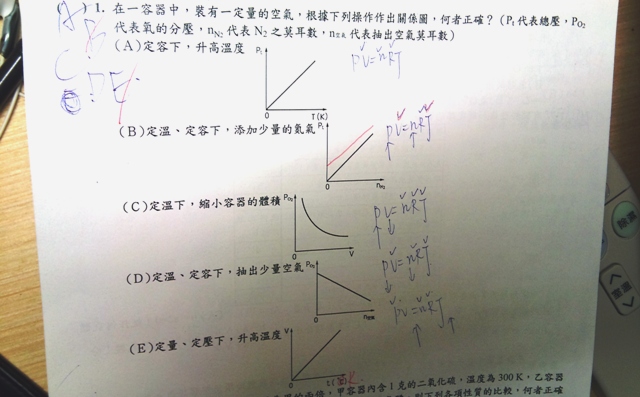 1. 在一容器中，裝有一定量的空氣，根據下列操作作出關係圖，何者正確？（Pt 代表總壓，PO2
代表氧的分壓，nN2 代表 N2 之莫耳數，n空氣 代表抽出空氣莫耳數）
A
B
C
D E
(A) 定容下，升高溫度
Pt
0
T(K)
PV=nRT
(B) 定溫、定容下，添加少量的氮氣
Pt
0
nN2
PV=nRT
(C) 定溫下，縮小容器的體積
PO2
0
V
PV=nRT
(D) 定溫、定容下，抽出少量空氣
PO2
0
n空氣
PV=nRT
(E) 定量、定壓下，升高溫度
V
0
PV=nRT
的兩倍，甲容器內含 1 克的二氧化硫，溫度為 300 K，乙容器
下列各項性質的比較，何者正確